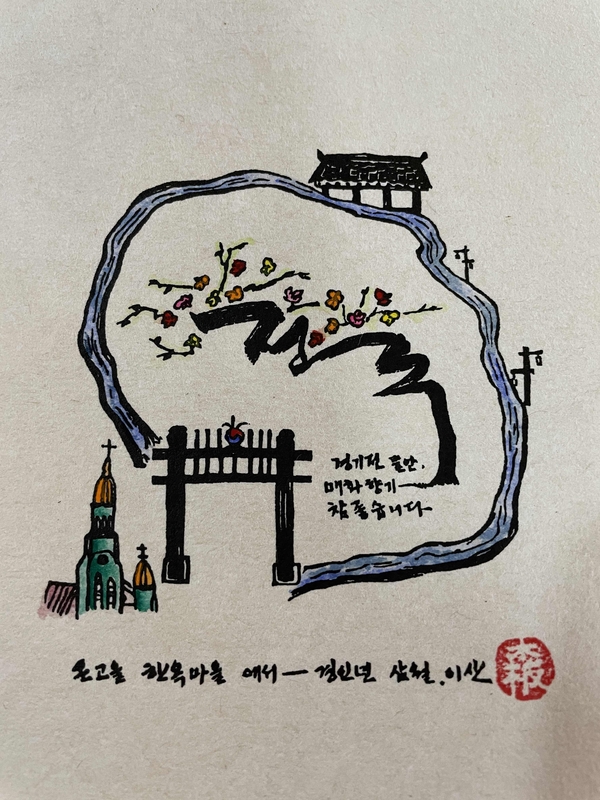 경기전 뜰안.
매화향기—
참 좋습니다—
온고을 한옥마을 에서 — 경인년 삼월. 이산